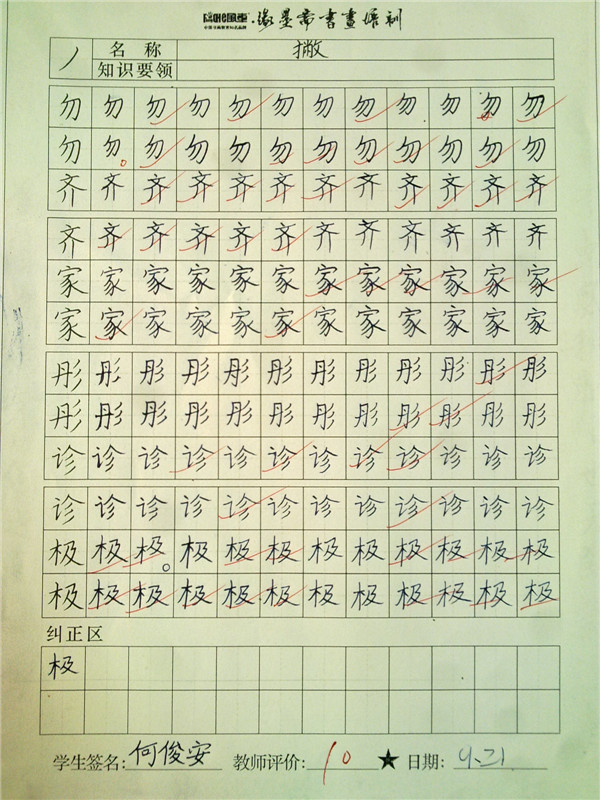 書畫培训
丿 名称 撇
知识要领
勿 勿 勿 勿 勿 勿 勿 勿 勿 勿 勿 勿
勿 勿 勿 勿 勿 勿 勿 勿 勿 勿 勿 勿
齐 齐 齐 齐 齐 齐 齐 齐 齐 齐 齐 齐
齐 齐 齐 齐 齐 齐 齐 齐 齐 齐 齐 齐
家 家 家 家 家 家 家 家 家 家 家 家
家 家 家 家 家 家 家 家 家 家 家 家
彤 彤 彤 彤 彤 彤 彤 彤 彤 彤 彤 彤
彤 彤 彤 彤 彤 彤 彤 彤 彤 彤 彤 彤
诊 诊 诊 诊 诊 诊 诊 诊 诊 诊 诊 诊
诊 诊 诊 诊 诊 诊 诊 诊 诊 诊 诊 诊
极 极 极 极 极 极 极 极 极 极 极 极
极 极 极 极 极 极 极 极 极 极 极 极
纠正区
极
学生签名: 何俊安 教师评价: 10 ★ 日期: 4.21